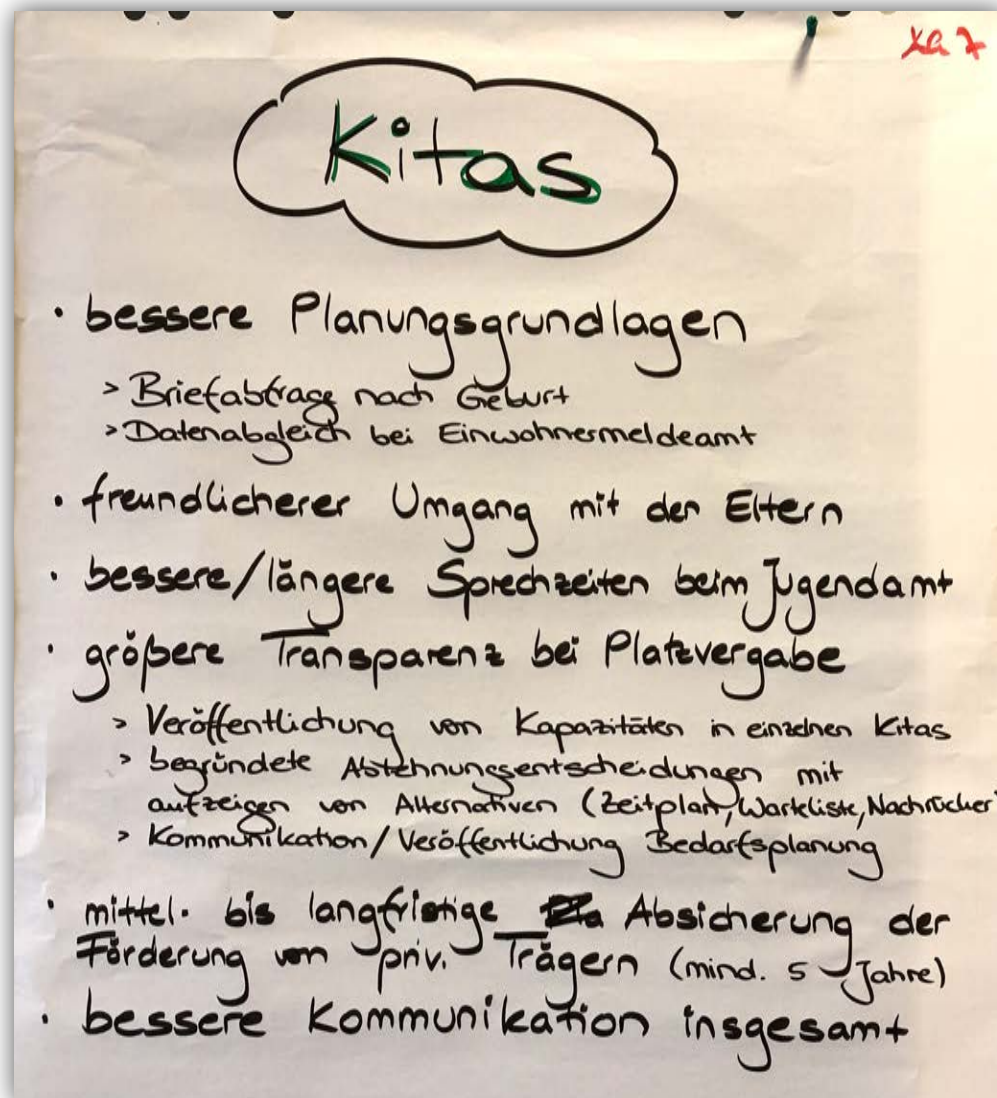 Kitas
· bessere Planungsgrundlagen
> Briefabfrage nach Geburt
> Datenabgleich bei Einwohnermeldeamt
· freundlicherer Umgang mit den Eltern
· bessere/längere Sprechzeiten beim Jugendamt
· größere Transparenz bei Platzvergabe
> Veröffentlichung von Kapazitäten in einzelnen Kitas
> begründete Ablehnungsentscheidungen mit
aufzeigen von Alternativen (Zeitplan, Warteliste, Nachrücker)
> Kommunikation/Veröffentlichung Bedarfsplanung
· mittel- bis langfristige Absicherung der
Förderung von priv. Trägern (mind. 5 Jahre)
· bessere Kommunikation insgesamt